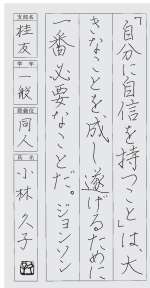 「自分に自信を持つこと」は、大
きなことを成し遂げるために
一番必要なことだ。ジョンソン
支部名
桂友
学年
一般
段級位
同人
氏名
小林久子